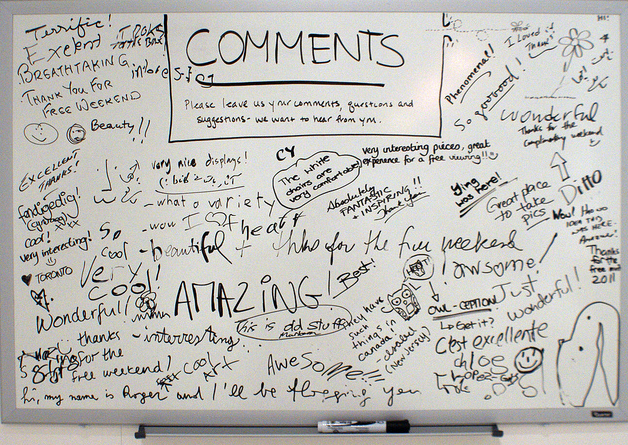 COMMENTS
Please leave us your comments, questions and
suggestions - we want to hear from you.
Terrific!
BREATHTAKING
THANK YOU FOR
FREE WEEKEND
Beauty!!
EXCELLENT
THANKS!
cool! XXX
very interesting!
TORONTO
So
cool
very nice displays!
- what a variety
- wow I
of hearts
- beautiful + thks for the free weekend
CY
The white
chairs are
very comfortable!
very interesting pieces, great
experience for a free viewing!!
Absolutely
FANTASTIC
+ INSPIRING!!
Thank you
Phenomenal!
I Loved it
Thanks
So goooood!
wonderful
Thanks for the
complimentary weekend
Ying
was here!
Great place
to take
pics
Ditto
Wow! Had no
idea this
was here -
Awesome!
Thanks
for the
free
2011
Very
cool!
Wonderful!
AMAZING!
Best!
awsome
Just
wonderful!
OWL-CEPTION
Get it?
This is odd stuff
They have
such
things in
Canada
(New Jersey)
thanks
- interresting
for the
free weekend!
cool
Art
Awesome!!!
C'est excellente
chloe
hi, my name is Roger and I'll be flogging you